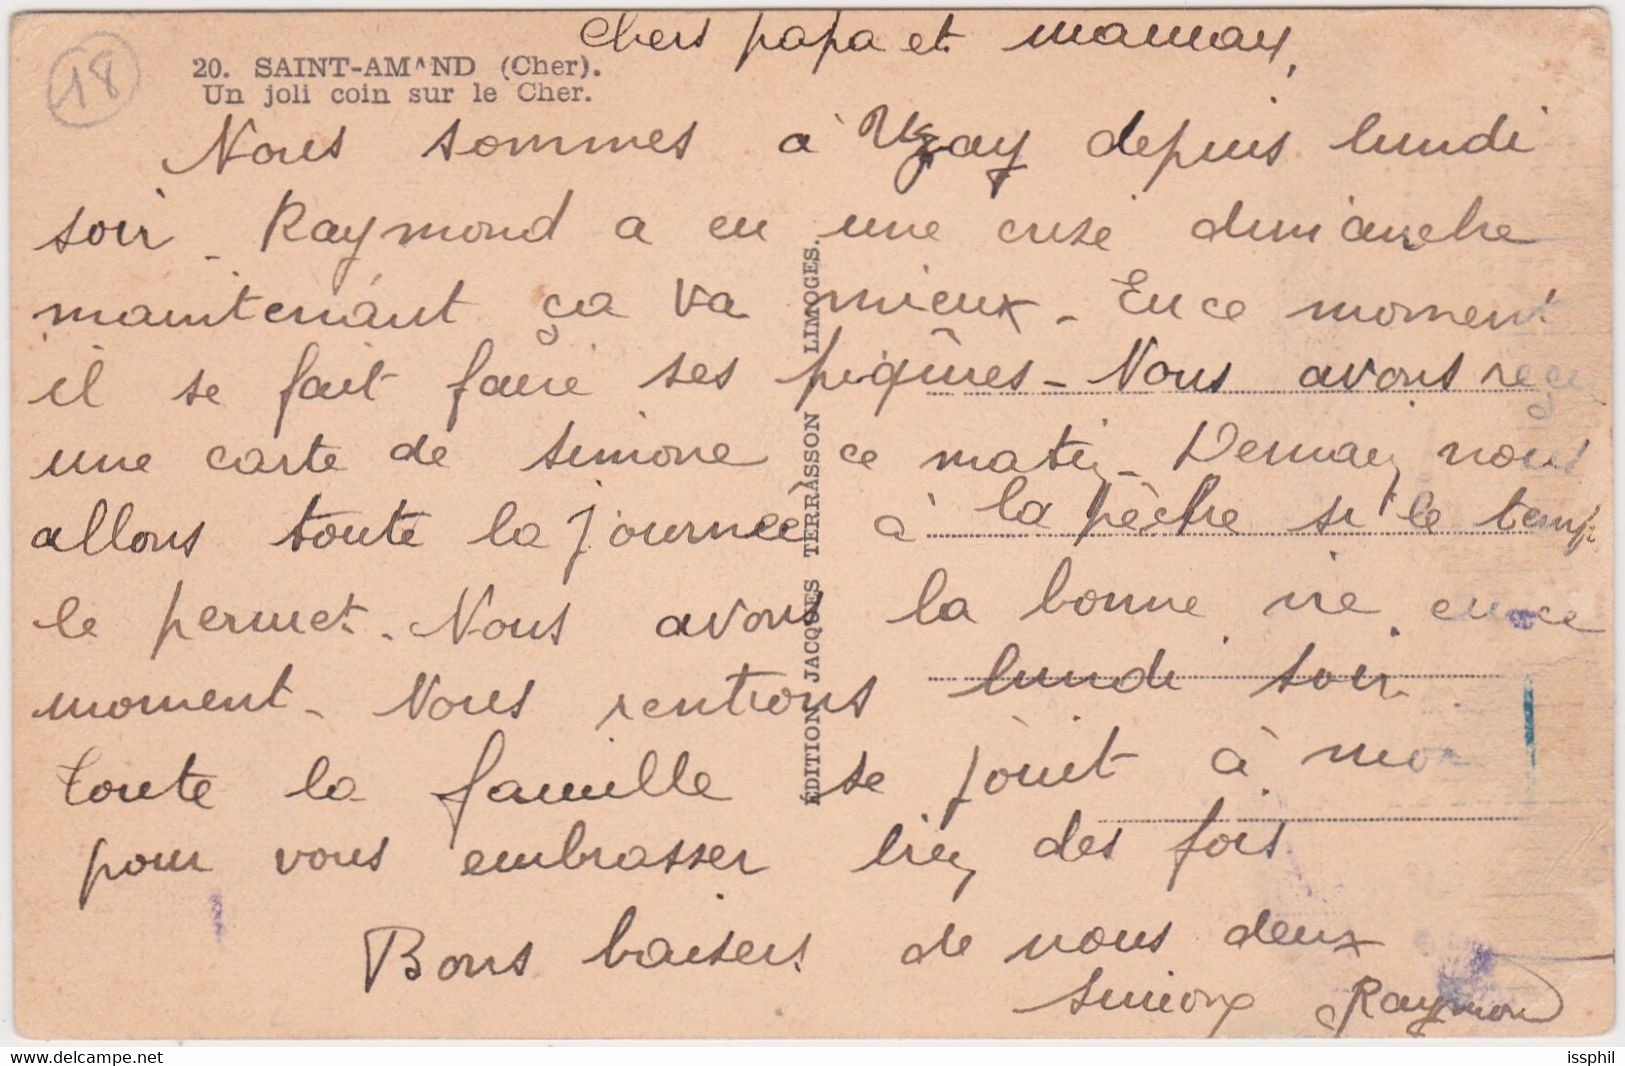 18
20. SAINT-AMAND (Cher).
Un joli coin sur le Cher.
Chers papa et maman,
Nous sommes à Uzay depuis lundi
soir. Raymond a eu une crise dimanche
maintenant ça va mieux. En ce moment
il se fait faire ses piqûres - Nous avons reçu
une carte de Simone ce matin - Demain nous
allons toute la journée à la pêche si le temps
le permet. Nous avons la bonne vie en ce
moment. Nous rentrons lundi soir.
Toute la famille se joint à moi
pour vous embrasser bien des fois
Bons baisers de nous deux
Simone Raymond
ÉDITION JACQUES TERRASSON LIMOGES.
issphil